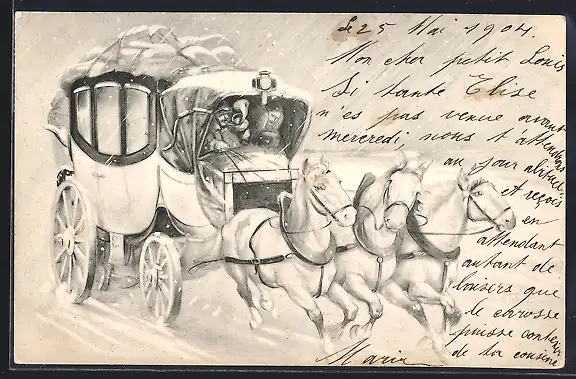 Le 25 Mai 1904.
Mon cher petit Louis
Si tante Elise
n'es pas venue avant
mercredi, nous t'attendons
au jour
et reçois
en
attendant
autant de
baisers que
le carosse
puisse contenir
de ta cousine
Maria